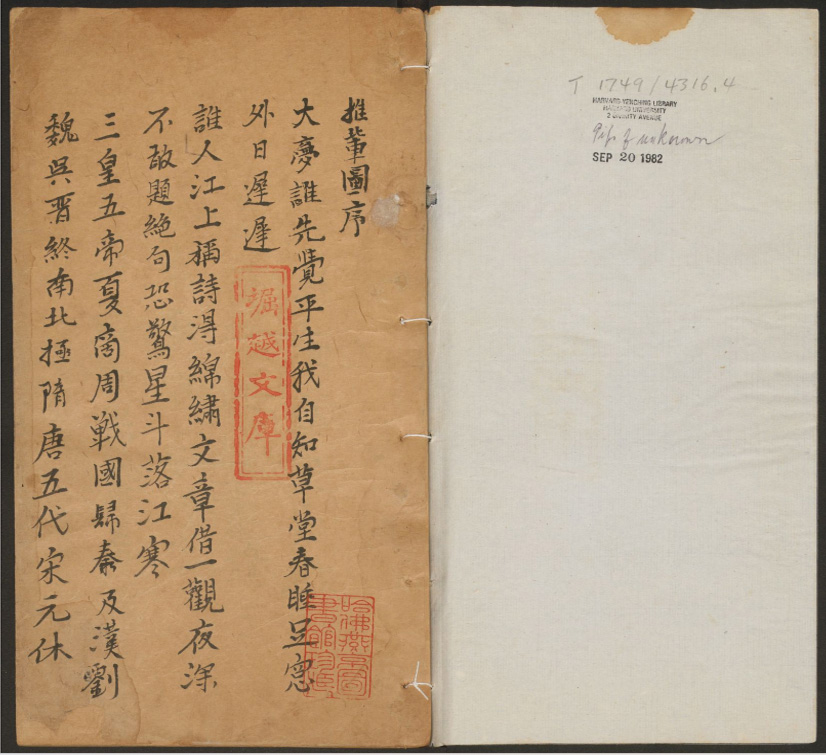 推輩圖序
大夢誰先覺平生我自知草堂春睡足窓
外日遲遲
誰人江上稱詩淂綿繡文章借一觀夜深
不敢題絕句恐驚星斗落江寒
三皇五帝夏商周戰國歸秦及漢劉
魏吳晋終南北極隋唐五代宋元休
堀越文庫
哈佛燕京圖
書館珍藏
T 1749/4316.4
HARVARD-YENCHING LIBRARY
HARVARD UNIVERSITY
2 DIVINITY AVENUE
Gift of unknown
SEP 20 1982